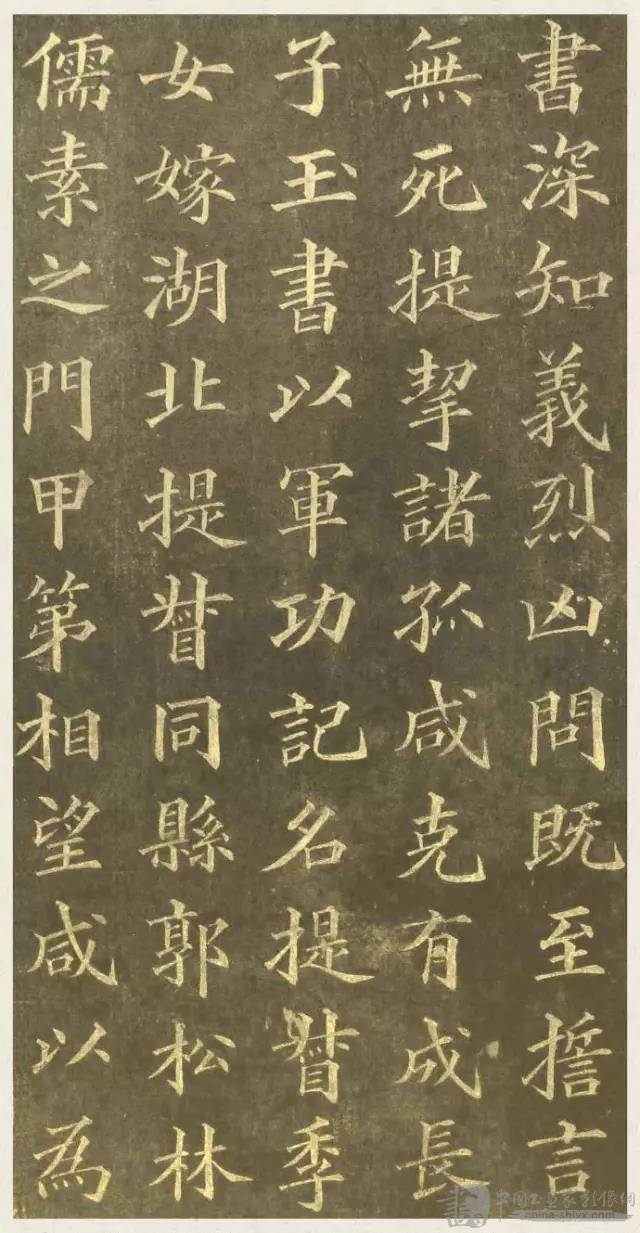 書深知義烈凶問既至誓言
無死提挈諸孤咸克有成長
子玉書以軍功記名提督季
女嫁湖北提督同縣郭松林
儒素之門甲第相望咸以為
中国书画家影像網
china-shiyx.com